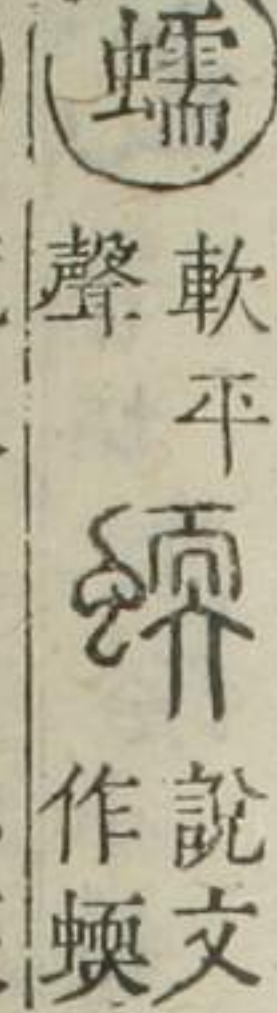 蠕
軟平
聲
說文
作蝡